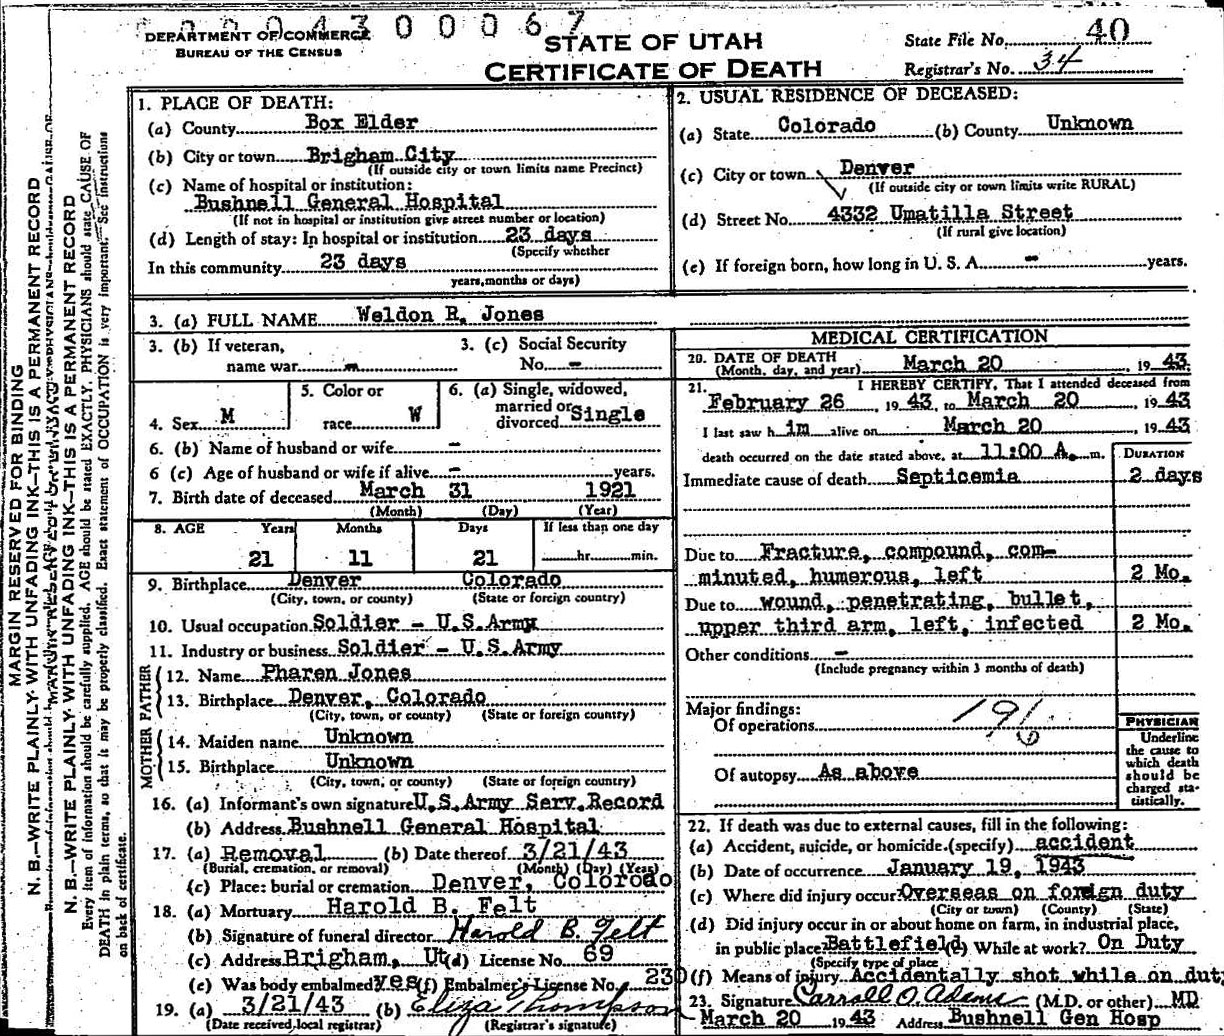 0000430067
DEPARTMENT OF COMMERCE
BUREAU OF THE CENSUS
STATE OF UTAH
CERTIFICATE OF DEATH
State File No. 40
Registrar's No. 34
MARGIN RESERVED FOR BINDING
N. B.—WRITE PLAINLY WITH UNFADING INK—THIS IS A PERMANENT RECORD
N. B.—WRITE PLAINLY WITH UNFADING INK—THIS IS A PERMANENT RECORD
Every item of information should be carefully supplied. AGE should be stated EXACTLY. PHYSICIANS should state CAUSE OF
DEATH in plain terms, so that it may be properly classified. Exact statement of OCCUPATION is very important. See instructions
on back of certificate.
1. PLACE OF DEATH:
(a) County Box Elder
(b) City or town Brigham City
(If outside city or town limits name Precinct)
(c) Name of hospital or institution:
Bushnell General Hospital
(If not in hospital or institution give street number or location)
(d) Length of stay: In hospital or institution 23 days
(Specify whether
In this community 23 days
years, months or days)
2. USUAL RESIDENCE OF DECEASED:
(a) State Colorado (b) County Unknown
(c) City or town Denver
(If outside city or town limits write RURAL)
(d) Street No. 4332 Umatilla Street
(If rural give location)
(e) If foreign born, how long in U. S. A. - years.
3. (a) FULL NAME Weldon R. Jones
3. (b) If veteran, 3. (c) Social Security
name war - No. -
4. Sex M 5. Color or race W 6. (a) Single, widowed, married or divorced Single
6. (b) Name of husband or wife -
6 (c) Age of husband or wife if alive - years.
7. Birth date of deceased March 31 1921
(Month) (Day) (Year)
8. AGE Years Months Days If less than one day
21 11 21 hr. min.
9. Birthplace Denver Colorado
(City, town, or county) (State or foreign country)
10. Usual occupation Soldier - U.S.Army
11. Industry or business Soldier - U.S.Army
FATHER
12. Name Pharen Jones
13. Birthplace Denver, Colorado
(City, town, or county) (State or foreign country)
MOTHER
14. Maiden name Unknown
15. Birthplace Unknown
(City, town, or county) (State or foreign country)
16. (a) Informant's own signature U.S.Army Serv.Record
(b) Address Bushnell General Hospital
17. (a) Removal (b) Date thereof 3/21/43
(Burial, cremation, or removal) (Month) (Day) (Year)
(c) Place: burial or cremation Denver, Colorado
18. (a) Mortuary Harold B. Felt
(b) Signature of funeral director Harold B. Felt
(c) Address Brigham, Ut (d) License No. 69
(e) Was body embalmed? yes (f) Embalmer's License No. 230
19. (a) 3/21/43 (b) Eliza Thompson
(Date received local registrar) (Registrar's signature)
MEDICAL CERTIFICATION
20. DATE OF DEATH March 20, 1943
(Month, day, and year)
21. I HEREBY CERTIFY, That I attended deceased from
February 26, 1943, to March 20, 1943
I last saw him alive on March 20, 1943
death occurred on the date stated above, at 11:00 A. m.
DURATION
Immediate cause of death Septicemia 2 days
Due to Fracture, compound, com-
minuted, humerous, left 2 Mo.
Due to wound, penetrating, bullet,
upper third arm, left, infected 2 Mo.
Other conditions -
(Include pregnancy within 3 months of death)
Major findings:
Of operations
Of autopsy As above
PHYSICIAN
Underline
the cause to
which death
should be
charged sta-
tistically.
22. If death was due to external causes, fill in the following:
(a) Accident, suicide, or homicide (specify) accident
(b) Date of occurrence January 19, 1943
(c) Where did injury occur? Overseas on foreign duty
(City or town) (County) (State)
(d) Did injury occur in or about home on farm, in industrial place,
in public place? Battlefield While at work? On Duty
(Specify type of place
(f) Means of injury Accidentally shot while on duty
23. Signature Carroll O. Adams (M.D. or other) MD
March 20 1943 Address Bushnell Gen Hosp